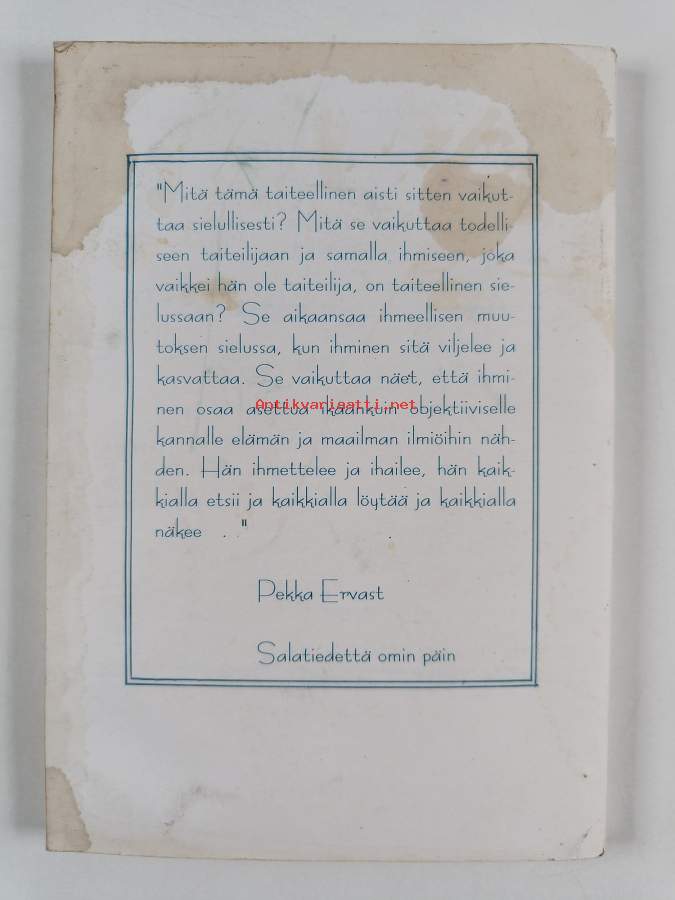 "Mitä tämä taiteellinen aisti sitten vaikut-
taa sielullisesti? Mitä se vaikuttaa todelli-
seen taiteilijaan ja samalla ihmiseen, joka
vaikkei hän ole taiteilija, on taiteellinen sie-
lussaan? Se aikaansaa ihmeellisen muu-
toksen sielussa, kun ihminen sitä viljelee ja
kasvattaa. Se vaikuttaa näet, että ihmi-
Antikvariaatti.net
nen osaa asettua ikäänkuin objektiiviselle
kannalle elämän ja maailman ilmiöihin näh-
den. Hän ihmettelee ja ihailee, hän kaik-
kialla etsii ja kaikkialla löytää ja kaikkialla
näkee . ."
Pekka Ervast
Salatiedettä omin päin